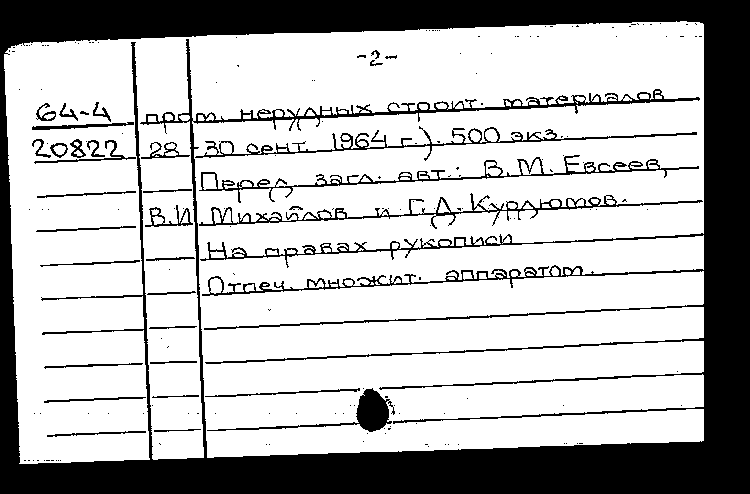 -2-
64-4 пром. нерудных строит. материалов
20822 28-30 сент. 1964 г.). 500 экз.
Перед загл. авт.: В.М. Евсеев,
В.И. Михайлов и Г.Д. Курдюмов.
На правах рукописи
Отпеч. множит. аппаратом.